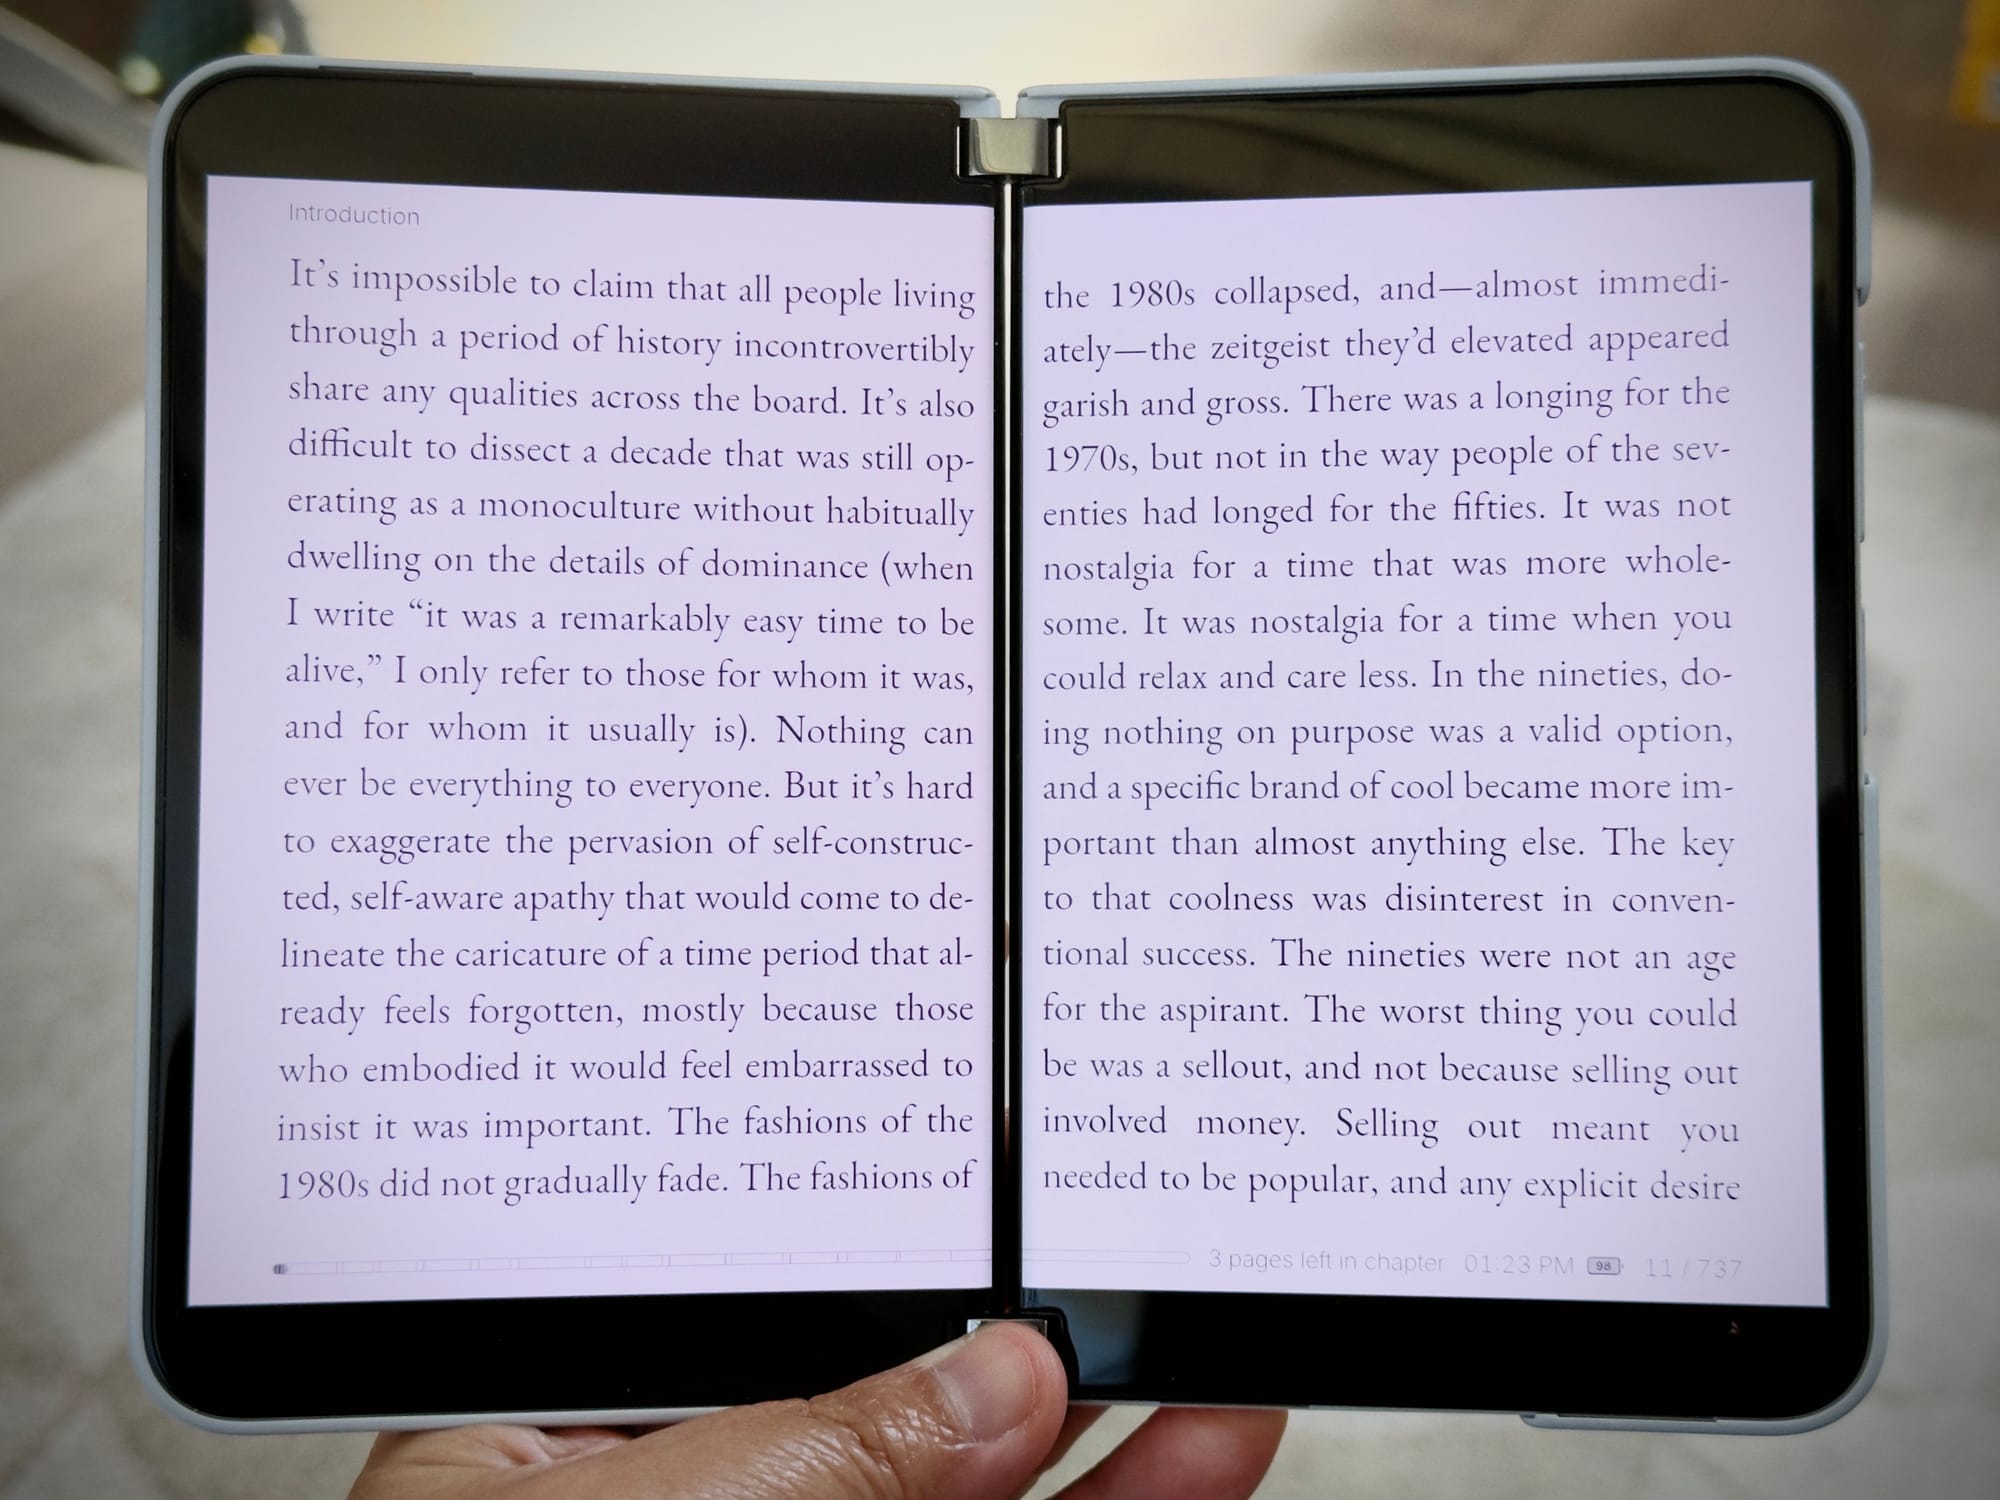 Introduction
It's impossible to claim that all people living
through a period of history incontrovertibly
share any qualities across the board. It's also
difficult to dissect a decade that was still op-
erating as a monoculture without habitually
dwelling on the details of dominance (when
I write “it was a remarkably easy time to be
alive,” I only refer to those for whom it was,
and for whom it usually is). Nothing can
ever be everything to everyone. But it's hard
to exaggerate the pervasion of self-construc-
ted, self-aware apathy that would come to de-
lineate the caricature of a time period that al-
ready feels forgotten, mostly because those
who embodied it would feel embarrassed to
insist it was important. The fashions of the
1980s did not gradually fade. The fashions of
the 1980s collapsed, and—almost immedi-
ately—the zeitgeist they'd elevated appeared
garish and gross. There was a longing for the
1970s, but not in the way people of the sev-
enties had longed for the fifties. It was not
nostalgia for a time that was more whole-
some. It was nostalgia for a time when you
could relax and care less. In the nineties, do-
ing nothing on purpose was a valid option,
and a specific brand of cool became more im-
portant than almost anything else. The key
to that coolness was disinterest in conven-
tional success. The nineties were not an age
for the aspirant. The worst thing you could
be was a sellout, and not because selling out
involved money. Selling out meant you
needed to be popular, and any explicit desire
3 pages left in chapter 01:23 PM 98 11 / 737